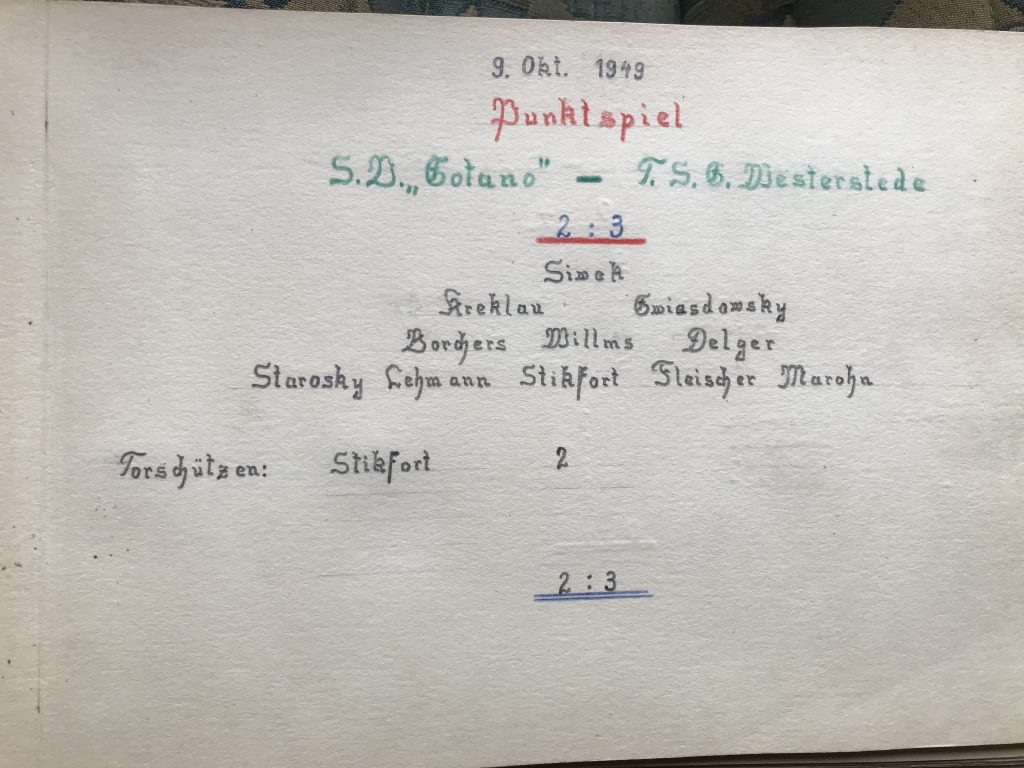 9. Okt. 1949
Punktspiel
S.V. „Gotano" – T.S.G. Westerstede
2 : 3
Siwek
Kreklau Gwiasdowsky
Borchers Willms Delger
Starosky Lehmann Stikfort Fleischer Marohn
Torschützen: Stikfort 2
2 : 3